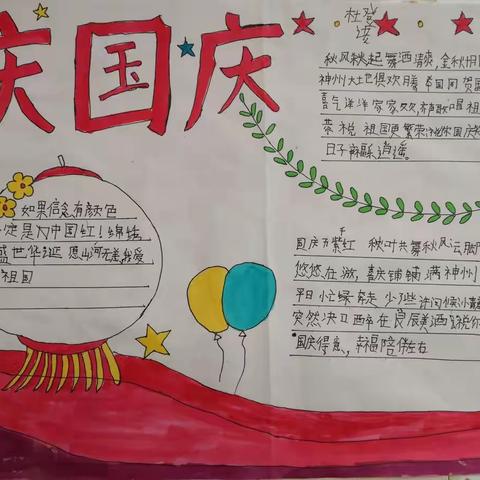 庆国庆
杜
秋风秋起舞洒清爽，金秋
神州大地俱欢腾 举国同贺国
喜气洋洋家家欢，齐声歌唱祖
恭祝祖国更繁荣，
日子 逍遥。
如果信念有颜色
定是 中国红！锦绣
盛世华诞 愿山河无恙，我爱
祖国
国庆万紫千红 秋叶共舞秋风云脚
悠悠在游，喜庆铺满神州
平日忙碌奔走 少了些许问候
突然决 醉在良辰美酒
国庆得意，幸福陪伴左右